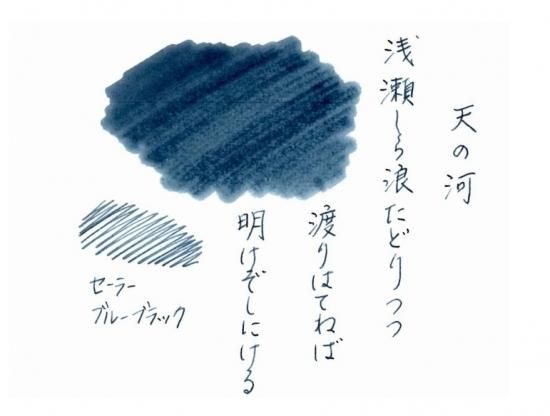 天の河
浅瀬しら浪たどりつつ
渡りはてねば
明けぞしにける
セーラー
ブルーブラック